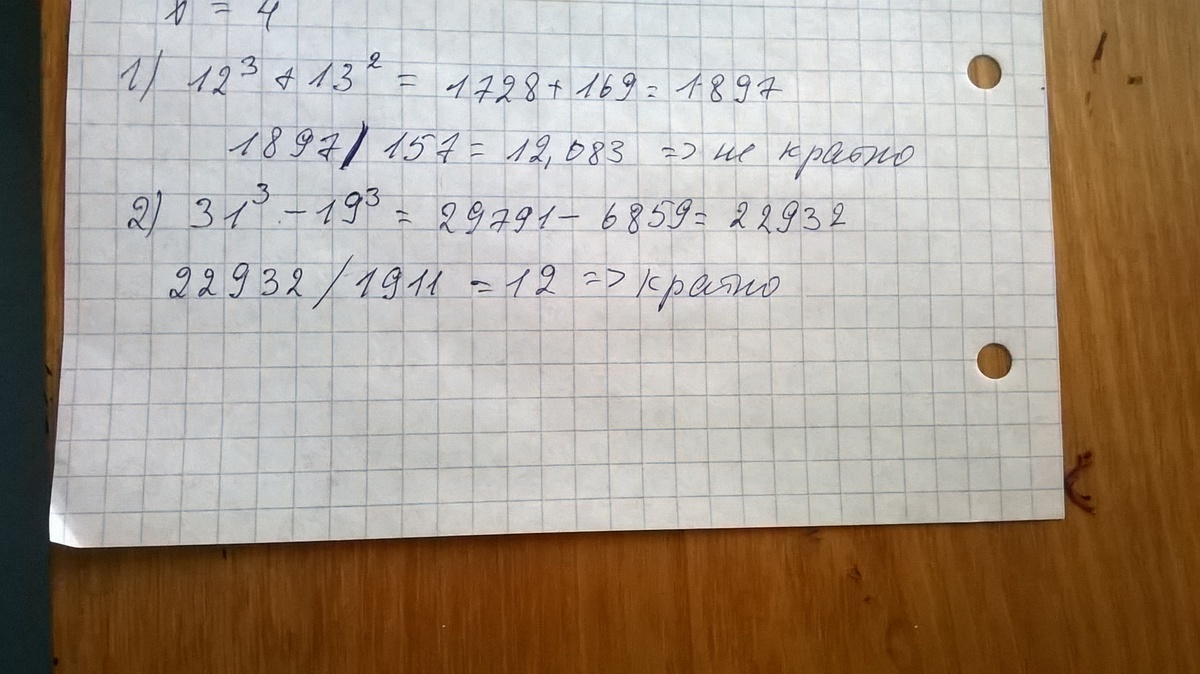 1) 12³ + 13² = 1728 + 169 = 1897
1897 / 157 = 12,083 => не кратно
2) 31³ - 19³ = 29791 - 6859 = 22932
22932 / 1911 = 12 => кратно